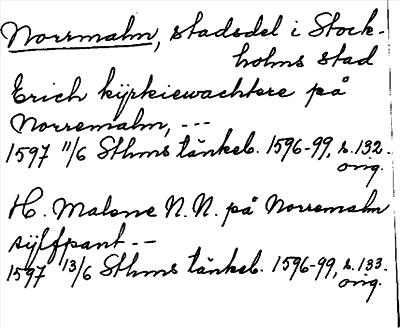 Norrmalm, stadsdel i Stock-
holms stad
Erich kyrkiewachtere på
Norremalm, ---
1597 11/6 Sthms tänkeb. 1596-99, s. 132.
orig.
H. Malsne N.N. på Norremalm
sÿlfpant --
1597 13/6 Sthms tänkeb. 1596-99, s. 133.
orig.